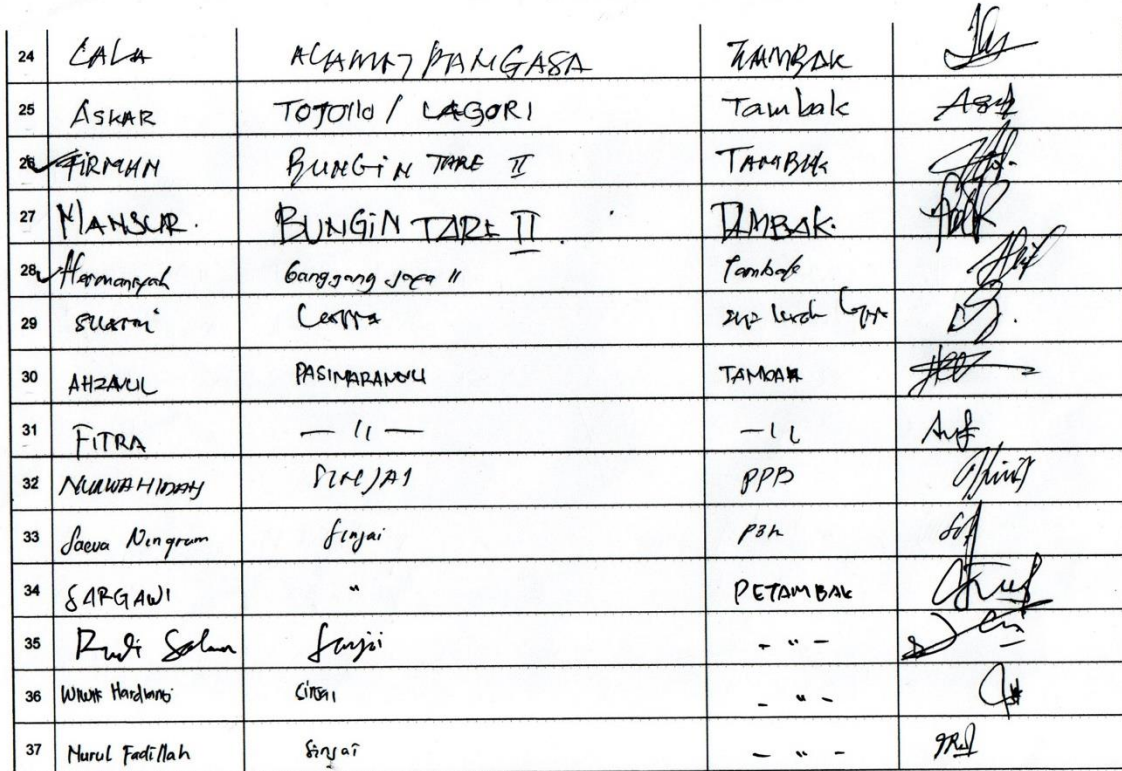 24 CALA ALAMAT PANGASA TAMBAK
25 ASKAR TOJOLLO / LAGORI Tambak
26 FIRMAN BUNGIN TARE II TAMBAK
27 MANSUR. BUNGIN TARE II. TAMBAK.
28 Hermansyah Ganggang Jaya II Tambak
29 Cemppa
30 AHZANUL PASIMARANNU TAMBAK
31 FITRA — 11 — — 11
32 NURWAHIDAH SINJAI PPB
33 Saeva Ningrum Sinjai P3h
34 SARGAWI " PETAMBAK
35 Rudi Sinjai - " -
36 Hardianti Sinjai - " -
37 Nurul Fadillah Sinjai - " -